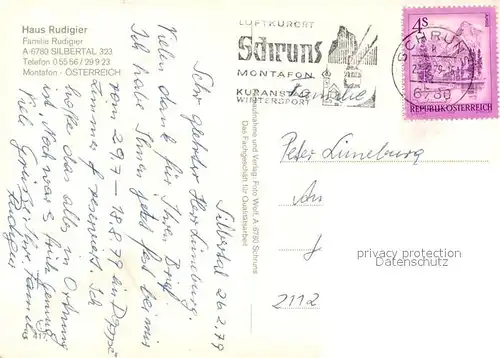 Haus Rudigier
Familie Rudigier
A-6780 SILBERTAL 323
Telefon 0 55 56 / 29 9 23
Montafon - ÖSTERREICH
LUFTKURORT
Schruns
MONTAFON
KURANSTALT
WINTERSPORT
SCHRUNS
6780
4S
REPUBLIK ÖSTERREICH
Silbertal 26.2.79
Sehr geehrter Herr Lüneburg.
Vielen dank für Ihren Brief
Ich habe Ihnen jetzt fest bei mir
vom 29.7 – 18.8.79 ein Doppe
Zimmer reserviert. Ich
hoffe das alles in Ordnung
ist. Noch war's früh Genug
Viele Grüsse Ihre Familie
Rudigier
Aufnahme und Verlag: Foto Wolf, A-6780 Schruns
Das Fachgeschäft für Qualitätsarbeit
Familie
Peter Lüneburg
An
2112
privacy protection
www.oldthing.de